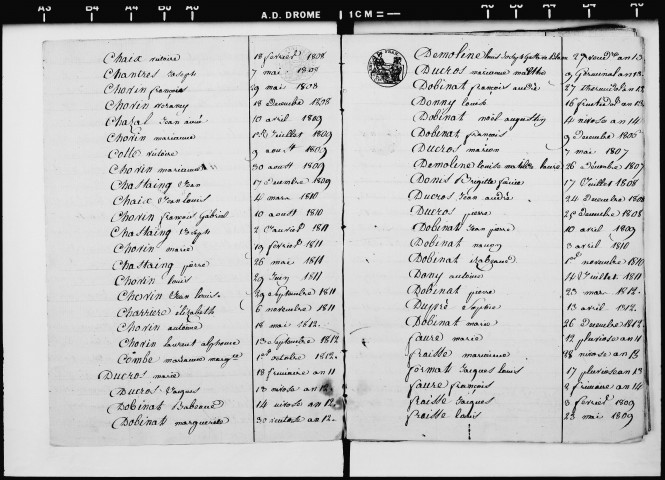 A3 B4 A4 A5 A.D. DROME 1 CM = A5 A4
Chaix victoire 18 fevrier 1808
Chantres joseph 7 mai 1808
Chorin françois 29 mai 1808
Chorin 18 Decembre 1808
Chazal Jean 10 avril 1809
Chorin marianne 1er Juillet 1809
Colle victoire 9 aoust 1809
Chorin marianne 30 aoust 1809
Chastaing Jean 17 Decembre 1809
Chaix Jean louis 4 mars 1810
Chorin françois Gabriel 10 aoust 1810
Chastaing Joseph 1811
Chorin marie 19 février 1811
Chastaing pierre 26 mai 1811
Chorin louis 29 Juin 1811
Chorin Jean louis 29 Septembre 1811
Charriere elizabeth 6 novembre 1811
Chorin antoine 18 mai 1812
Chorin laurent alphonse 13 Septembre 1812
Combe marianne 1er octobre 1812
Ducros marie 18 frimaire an 11
Ducros Jacques 13 nivose an 12
Dobinat Babeau 14 nivose an 12
Dobinat marguerite 30 an 12
Demoline louis an 13
Ducros marianne 9 Germinal an 13
Dobinat françois andré 27 thermidor an 13
Donny louise 16 fructidor an 13
Dobinat noël augustin 14 nivose an 14
Dobinat françois 9 Decembre
Ducros marion 7 mai 1807
Demoline louise laure 26 Décembre 1807
Donis Brigitte 17 Juillet 1808
Ducros Jean andré 24 Decembre 1808
Ducros pierre 25 Decembre 1808
Dobinat Jean pierre 10 avril 1809
Dobinat 3 avril 1810
Dobinat 1er novembre 1810
Dony antoine 14 Juillet 1811
Dobinat pierre 23 mar 1812
Dupré Sophie 13 avril 1812
Dobinat marie 26 Decembre 1812
faure marie 12 pluviose an 11
fraisse marianne 28 nivose an 13
format Jacques louis 17 pluviose an 13
faure françois 2 frimaire an 14
fraisse Jacques 8 fevrier 1809
fraisse louis 23 mai 1809